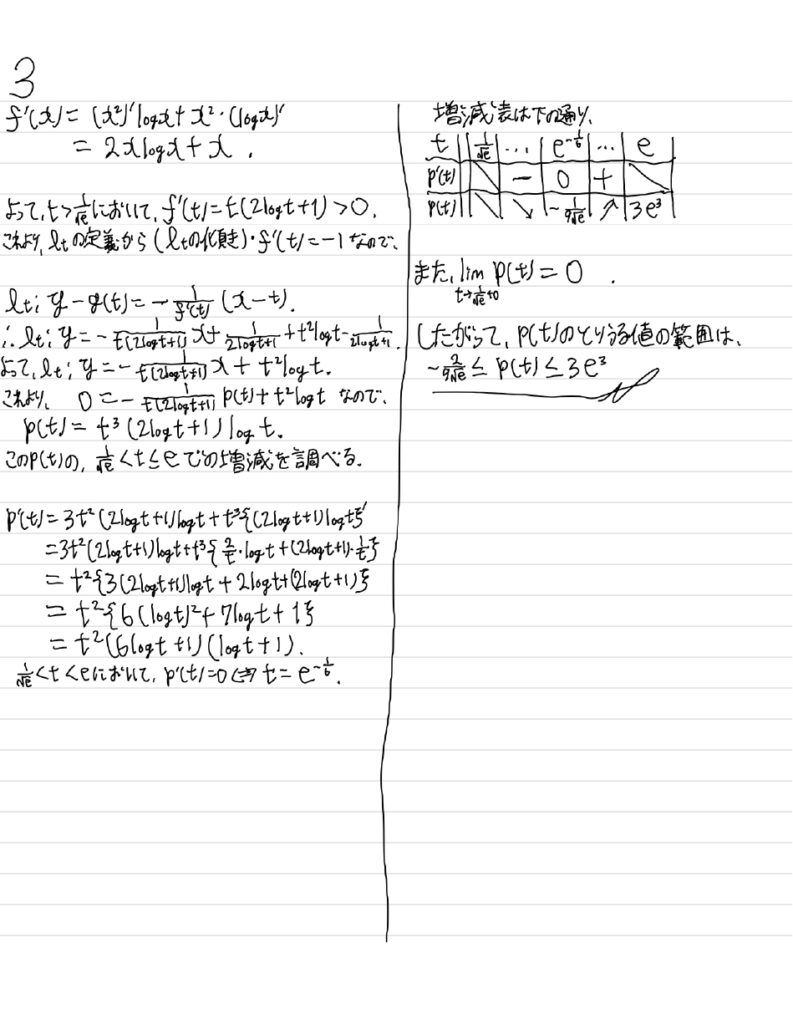 3
f'(x) = (x²)' log x + x²・(log x)'
= 2x log x + x .
よって, t > 1/√e において, f'(t) = t(2 log t + 1) > 0.
これより, l_t の定義から (l_t の傾き)・f'(t) = -1 なので,
l_t ; y - y(t) = - 1/f'(t) (x - t).
∴ l_t ; y = - 1/t(2 log t + 1) x + 1/2 log t + 1 + t² log t - 1/2 log t + 1 .
よって, l_t ; y = - 1/t(2 log t + 1) x + t² log t.
これより, 0 = - 1/t(2 log t + 1) p(t) + t² log t なので,
p(t) = t³ (2 log t + 1) log t.
この p(t) の, 1/√e < t ≤ e での増減を調べる.
p'(t) = 3t² (2 log t + 1) log t + t³{(2 log t + 1) log t}'
= 3t² (2 log t + 1) log t + t³{2/t・log t + (2 log t + 1)・1/t}
= t²{3(2 log t + 1) log t + 2 log t + (2 log t + 1)}
= t²{6(log t)² + 7 log t + 1}
= t² (6 log t + 1)(log t + 1).
1/√e < t < e において, p'(t) = 0 ⇔ t = e^{-1/6}.
増減表は下の通り.
t | 1/√e | … | e^{-1/6} | … | e
p'(t) | ＼ | - | 0 | + | ＼
p(t) | ＼ | ↘ | - 1/9√e | ↗ | 3e³
また, lim_{t→1/√e+0} p(t) = 0 .
したがって, p(t) のとりうる値の範囲は,
- 2/9√e ≤ p(t) ≤ 3e³